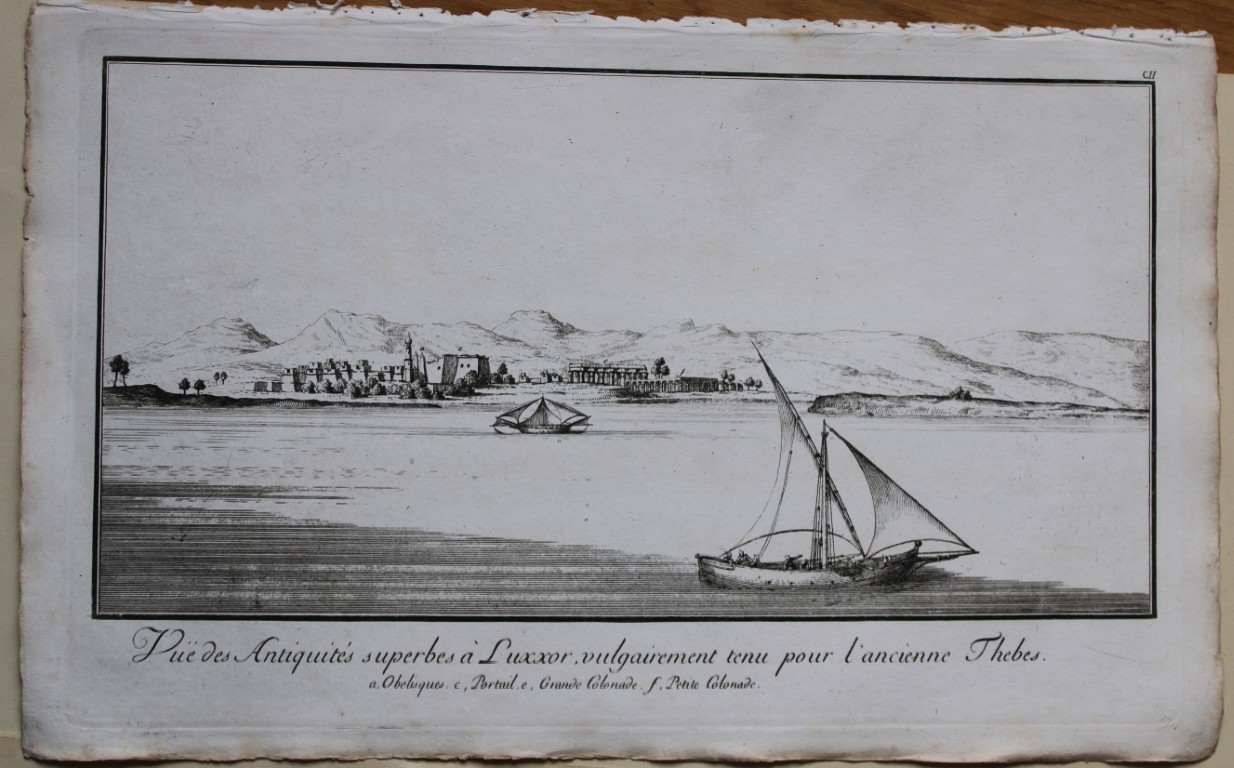 CII
Vüe des Antiquités superbes à Luxxor, vulgairement tenu pour l'ancienne Thebes.
a, Obelisques. c, Portail. e, Grande Colonade. f, Petite Colonade.